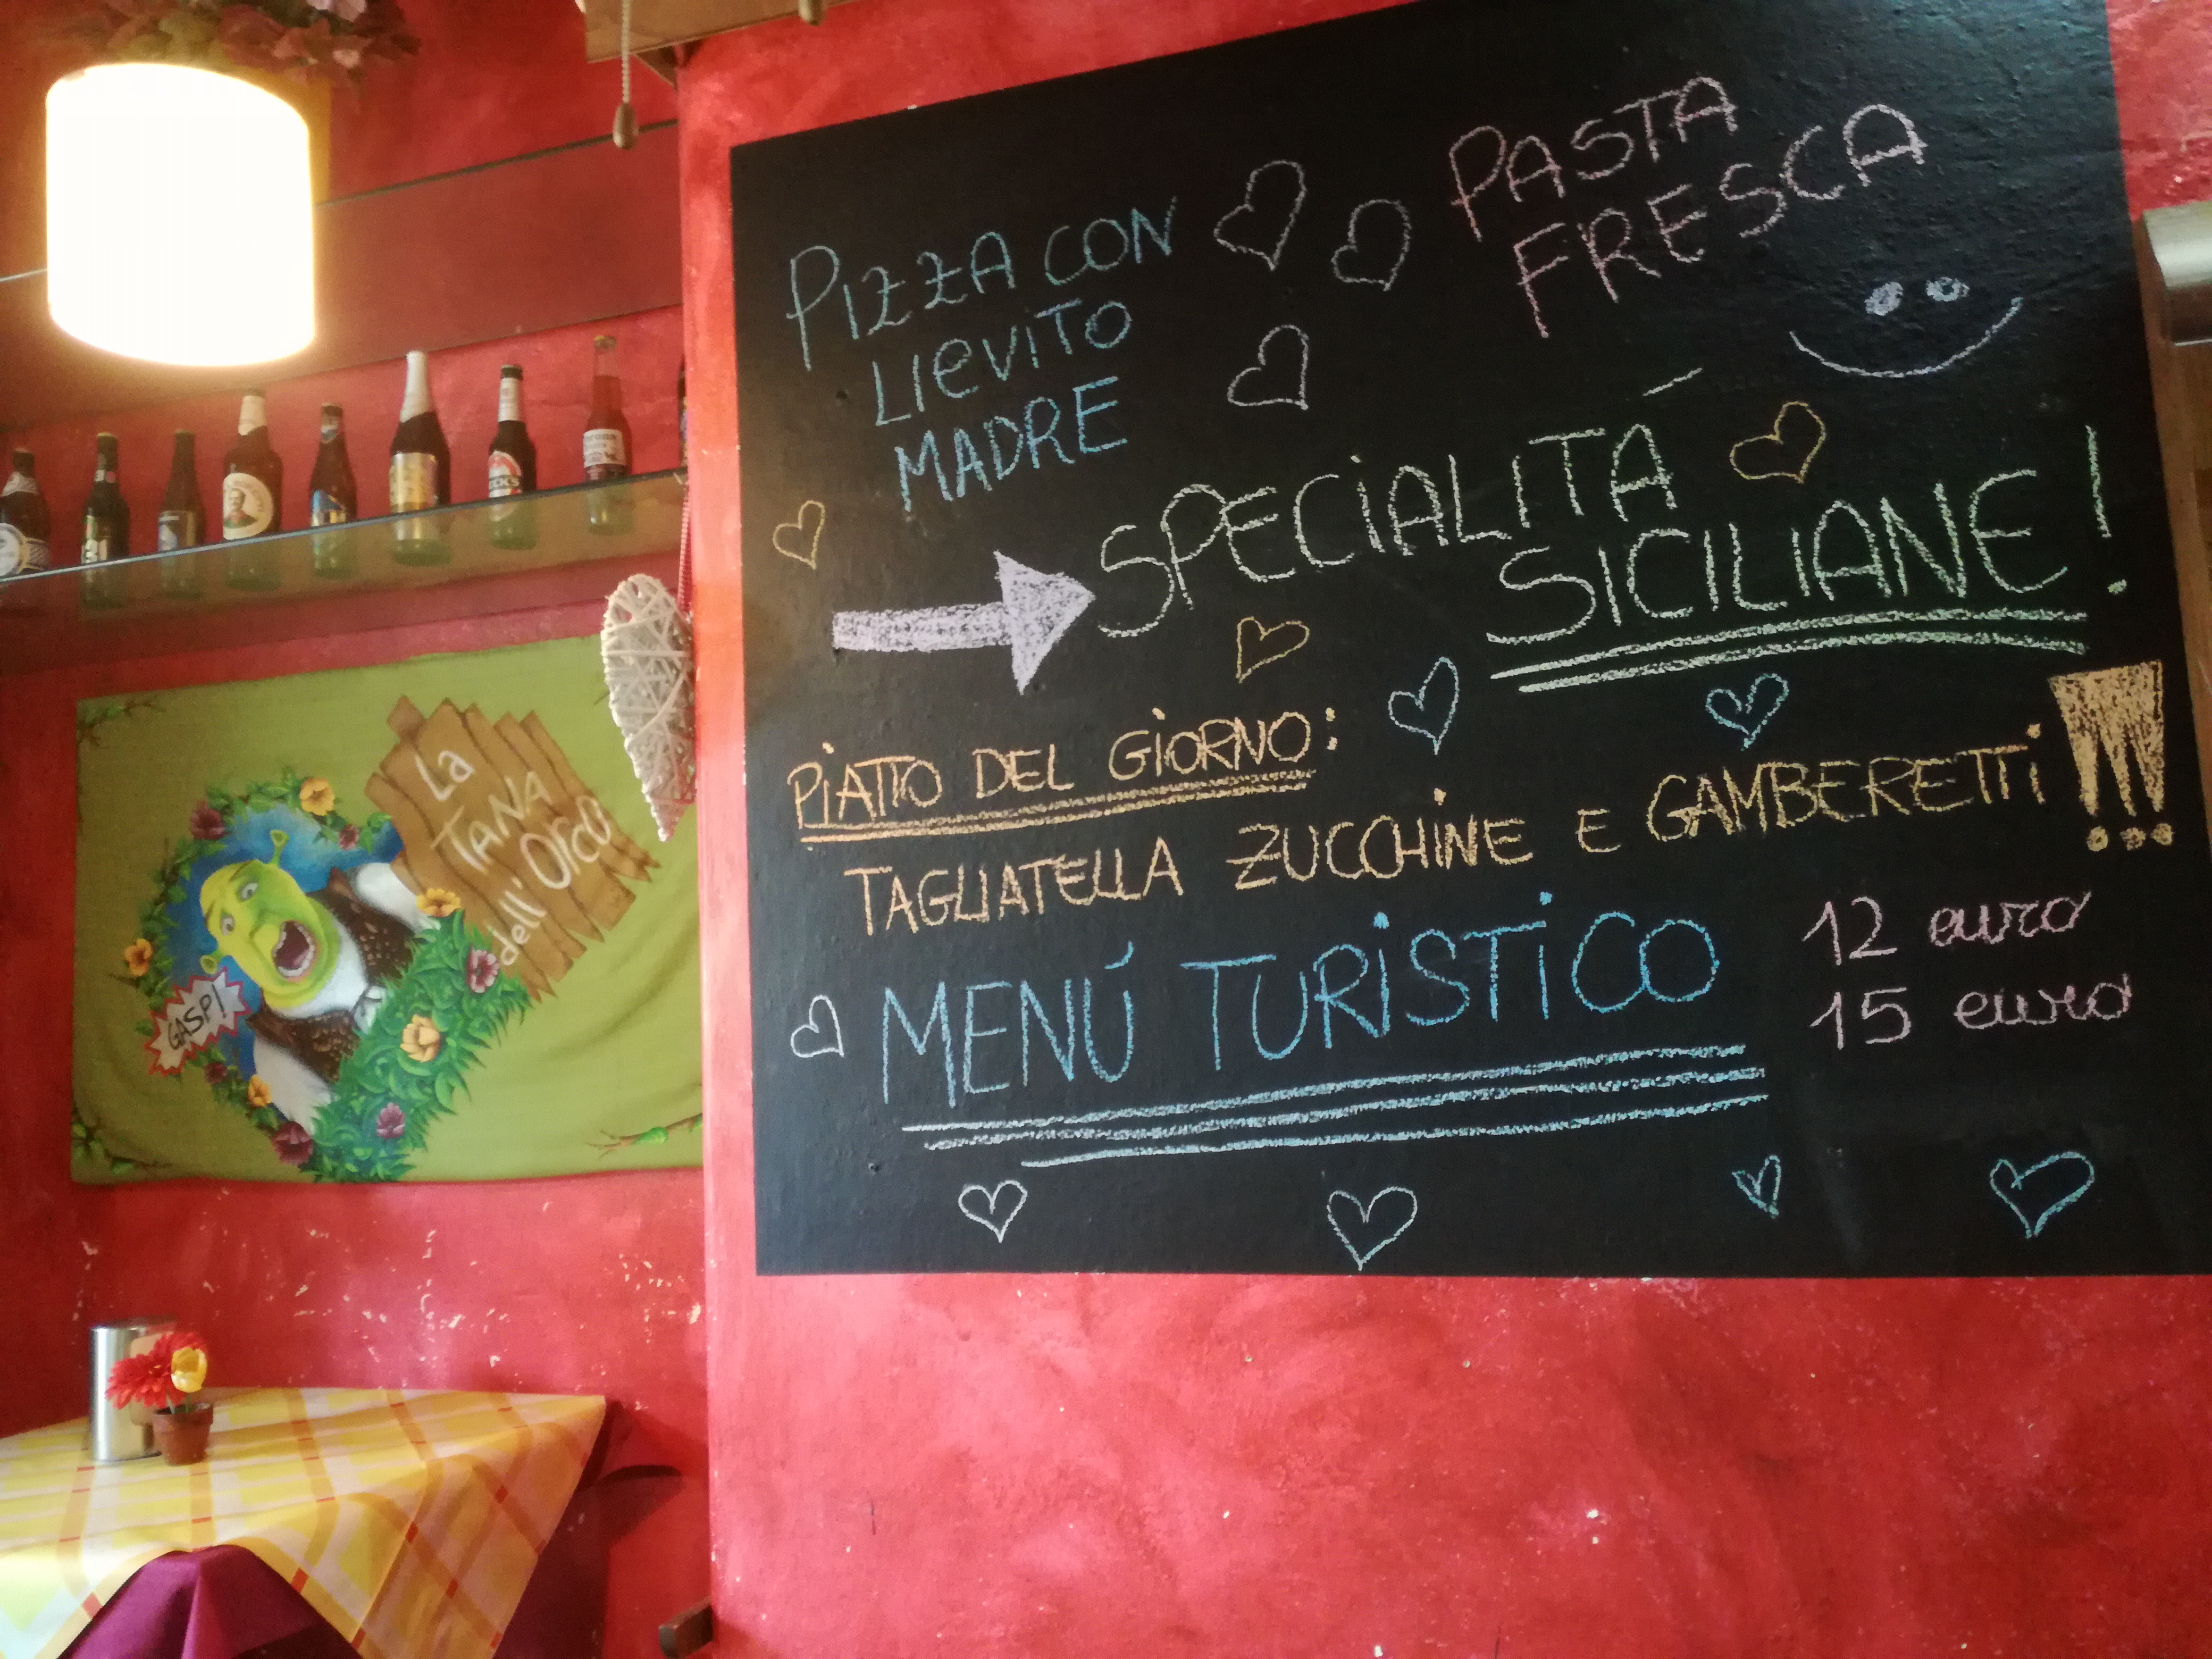 PIZZA CON
LIEVITO
MADRE
PASTA
FRESCA
SPECIALITÁ
SICILIANE!
PIATTO DEL GIORNO:
TAGLIATELLA ZUCCHINE E GAMBERETTI!!!
MENÚ TURISTICO
12 euro
15 euro
La
TANA
dell'ORCO
GASP!